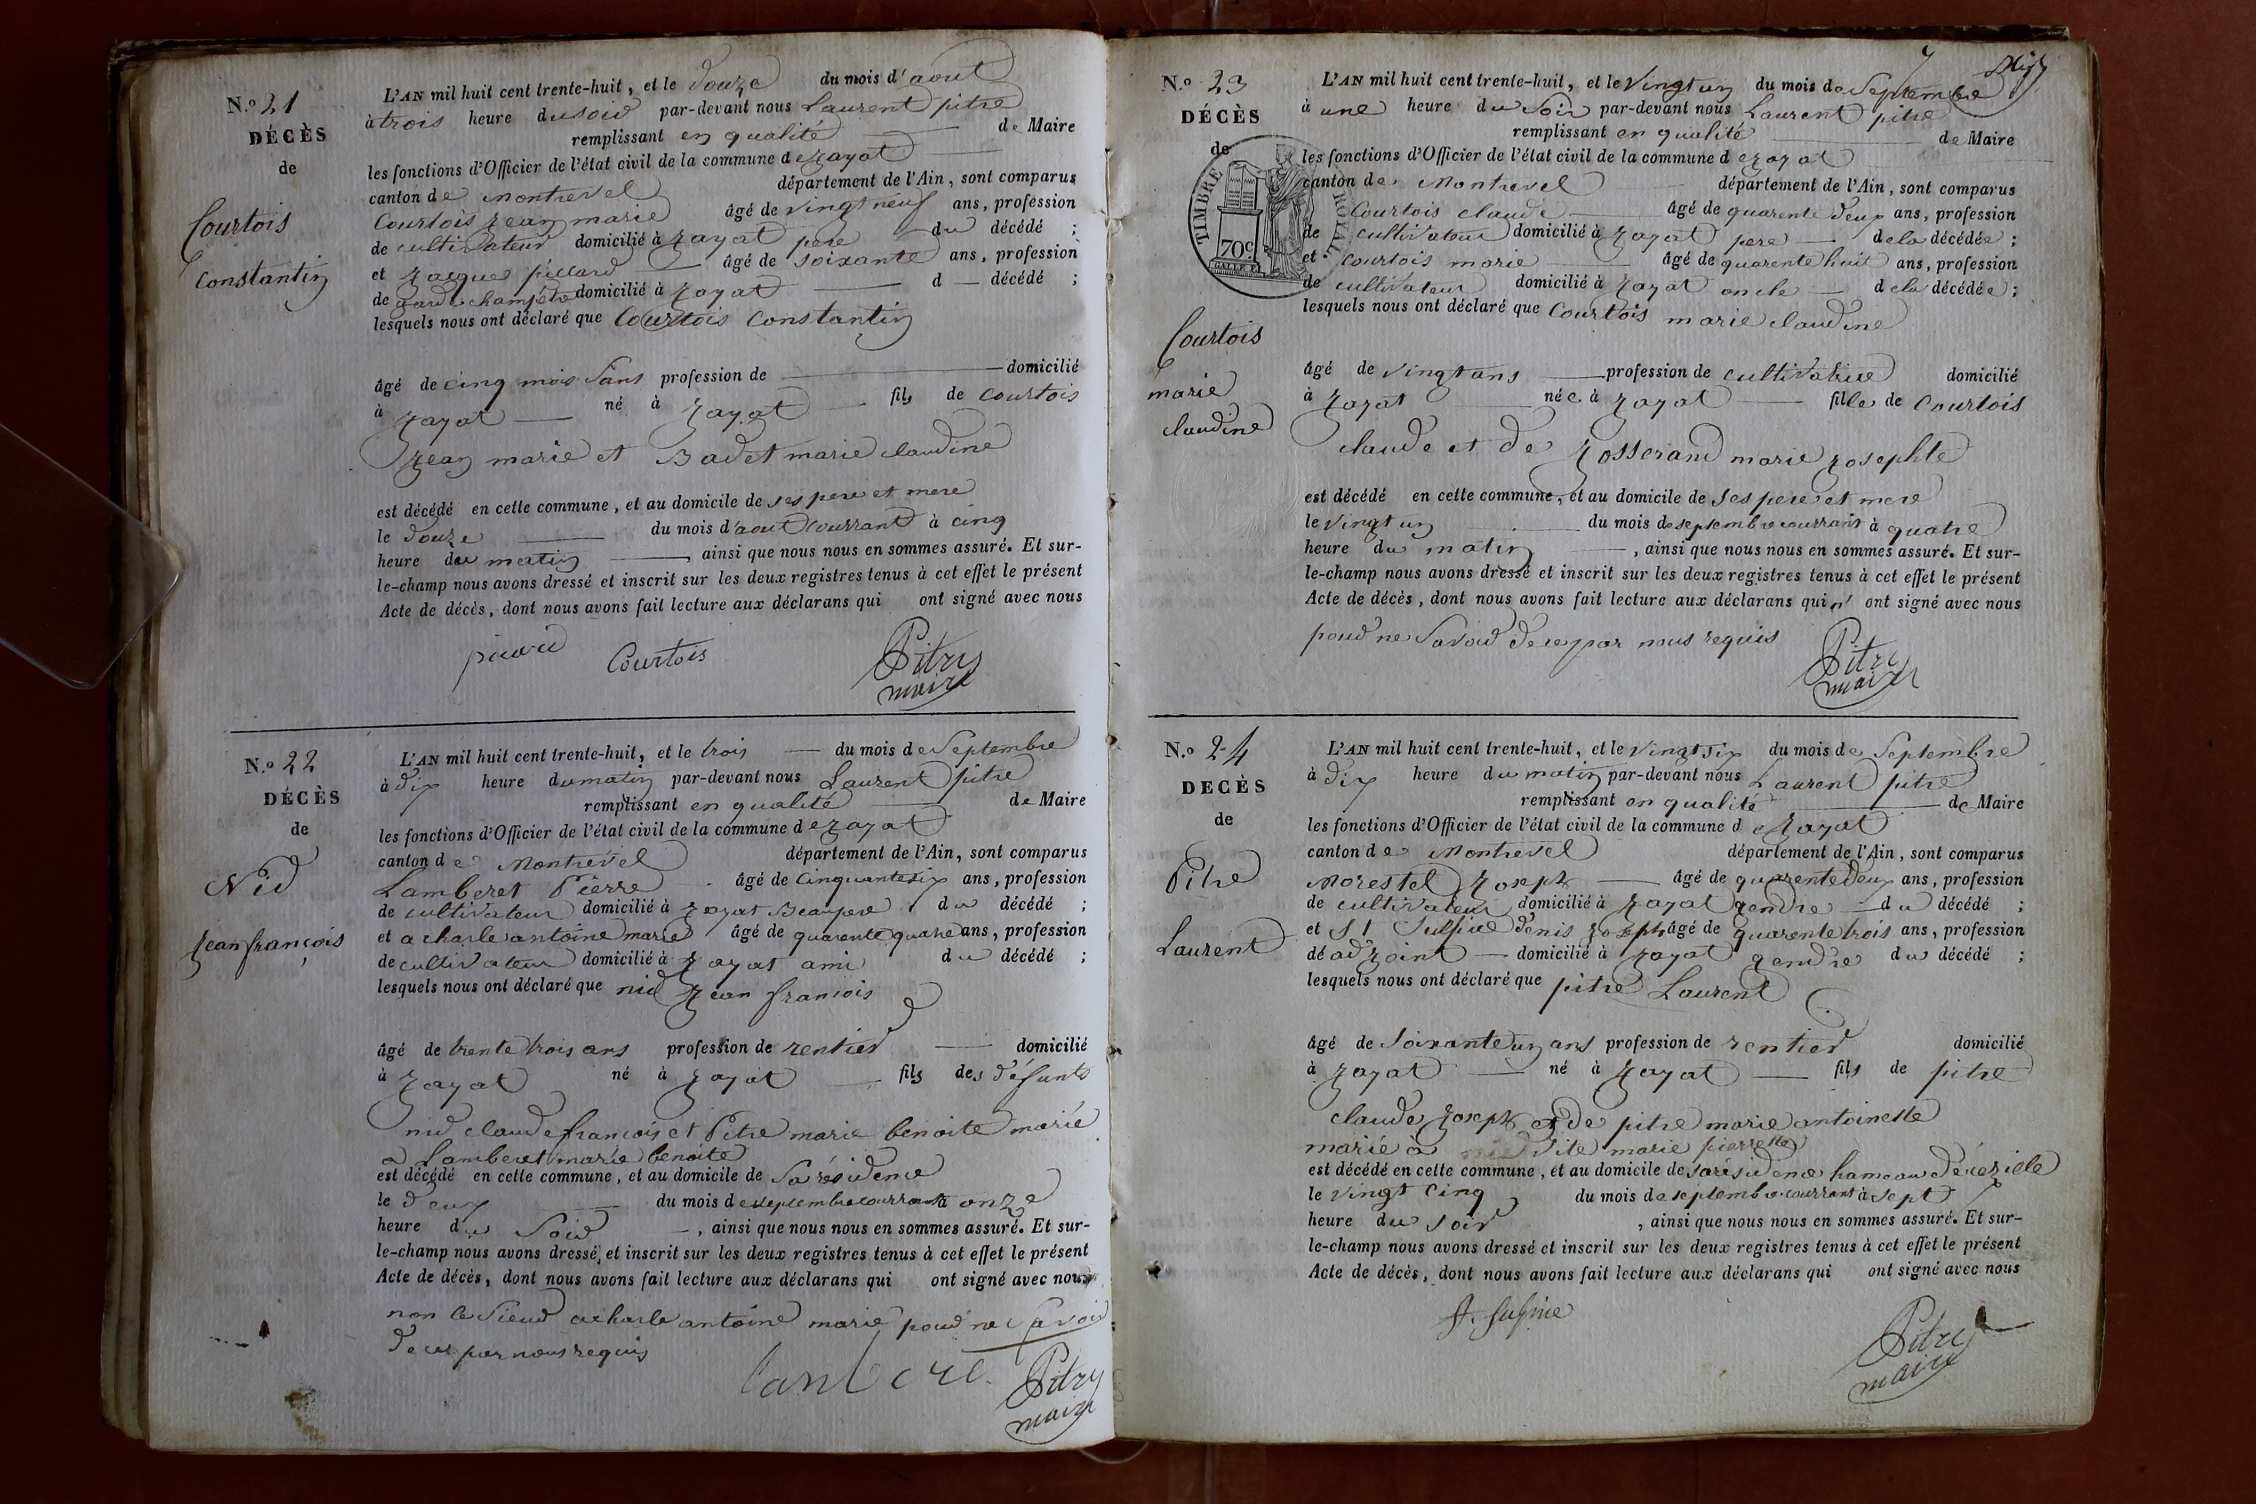 N.o 21
DÉCÈS
de
Courtois
Constantin
L'AN mil huit cent trente-huit, et le douze du mois d'aout
à trois heure du soir par-devant nous Laurent pitre
remplissant en qualité de Maire
les fonctions d'Officier de l'état civil de la commune de zayat
canton de Montrevel département de l'Ain, sont comparus
Courtois Jean marie âgé de vingt neuf ans, profession
de cultivateur domicilié à Jayat pere du décédé ;
et Jacques pillard âgé de soixante ans, profession
de garde champêtre domicilié à Jayat d décédé ;
lesquels nous ont déclaré que Courtois Constantin
âgé de cinq mois sans profession de domicilié
à Jayat né à Jayat fils de Courtois
Jean marie et Badet marie claudine
est décédé en cette commune, et au domicile de ses pere et mere
le douze du mois d'aout courrant à cinq
heure du matin , ainsi que nous nous en sommes assuré. Et sur-
le-champ nous avons dressé et inscrit sur les deux registres tenus à cet effet le présent
Acte de décès, dont nous avons fait lecture aux déclarans qui ont signé avec nous
Courtois Pitre
maire
N.o 22
DÉCÈS
de
Nid
Jean françois
L'AN mil huit cent trente-huit, et le trois du mois de Septembre
à dix heure du matin par-devant nous Laurent pitre
remplissant en qualité de Maire
les fonctions d'Officier de l'état civil de la commune de zayat
canton de Montrevel département de l'Ain, sont comparus
Lamberet Pierre âgé de Cinquante six ans, profession
de cultivateur domicilié à Jayat Beaupere du décédé ;
et acharle antoine marie âgé de quarente quatre ans, profession
de cultivateur domicilié à Jayat ami du décédé ;
lesquels nous ont déclaré que nid Jean francois
âgé de trente trois ans profession de rentier domicilié
à Jayat né à Jayat fils des défunts
nid claude françois et Pitre marie benoite marié
a Lamberet marie benoite
est décédé en cette commune, et au domicile de Sa résidence
le deux du mois de septembre courrant à onze
heure du Soir , ainsi que nous nous en sommes assuré. Et sur-
le-champ nous avons dressé et inscrit sur les deux registres tenus à cet effet le présent
Acte de décès, dont nous avons fait lecture aux déclarans qui ont signé avec nous
non le Sieur acharle antoine marie pour ne Savoir
de ces par nous requis
Lamberet Pitre
maire
N.o 23
DÉCÈS
de
TIMBRE ROYAL
70c
Courtois
marie
claudine
L'AN mil huit cent trente-huit, et le vingt un du mois de Septembre
à une heure du Soir par-devant nous Laurent pitre
remplissant en qualité de Maire
les fonctions d'Officier de l'état civil de la commune de zayat
canton de Montrevel département de l'Ain, sont comparus
Courtois claude âgé de quarente deux ans, profession
de cultivateur domicilié à Jayat pere de la décédée ;
et Courtois marie âgé de quarente huit ans, profession
de cultivateur domicilié à Jayat oncle de la décédée ;
lesquels nous ont déclaré que Courtois marie claudine
âgé de vingt ans profession de cultivatrice domicilié
à Jayat née à Jayat fille de Courtois
claude et de Josserand marie Josephte
est décédé en cette commune, et au domicile de ses pere et mere
le vingt un du mois de septembre courrant à quatre
heure du matin , ainsi que nous nous en sommes assuré. Et sur-
le-champ nous avons dressé et inscrit sur les deux registres tenus à cet effet le présent
Acte de décès, dont nous avons fait lecture aux déclarans qui n' ont signé avec nous
pour ne Savoir de ce par nous requis
Pitre
maire
N.o 24
DECÈS
de
Pitre
Laurent
L'AN mil huit cent trente-huit, et le vingt six du mois de Septembre
à dix heure du matin par-devant nous Laurent pitre
remplissant en qualité de Maire
les fonctions d'Officier de l'état civil de la commune de Jayat
canton de Montrevel département de l'Ain, sont comparus
Morestel Joseph âgé de quarente deux ans, profession
de cultivateur domicilié à Jayat gendre du décédé ;
et St Sulpice denis Joseph âgé de quarente trois ans, profession
dé adjoint domicilié à Jayat gendre du décédé ;
lesquels nous ont déclaré que pitre Laurent
âgé de Soixante un ans profession de rentier domicilié
à Jayat né à Jayat fils de pitre
claude Joseph et de pitre marie antoinette
marié à marie pierrette
est décédé en cette commune, et au domicile de sa résidence hameau
le vingt cinq du mois de septembre courrant à sept
heure du soir , ainsi que nous nous en sommes assuré. Et sur-
le-champ nous avons dressé et inscrit sur les deux registres tenus à cet effet le présent
Acte de décès, dont nous avons fait lecture aux déclarans qui ont signé avec nous
St. Sulpice Pitre
maire